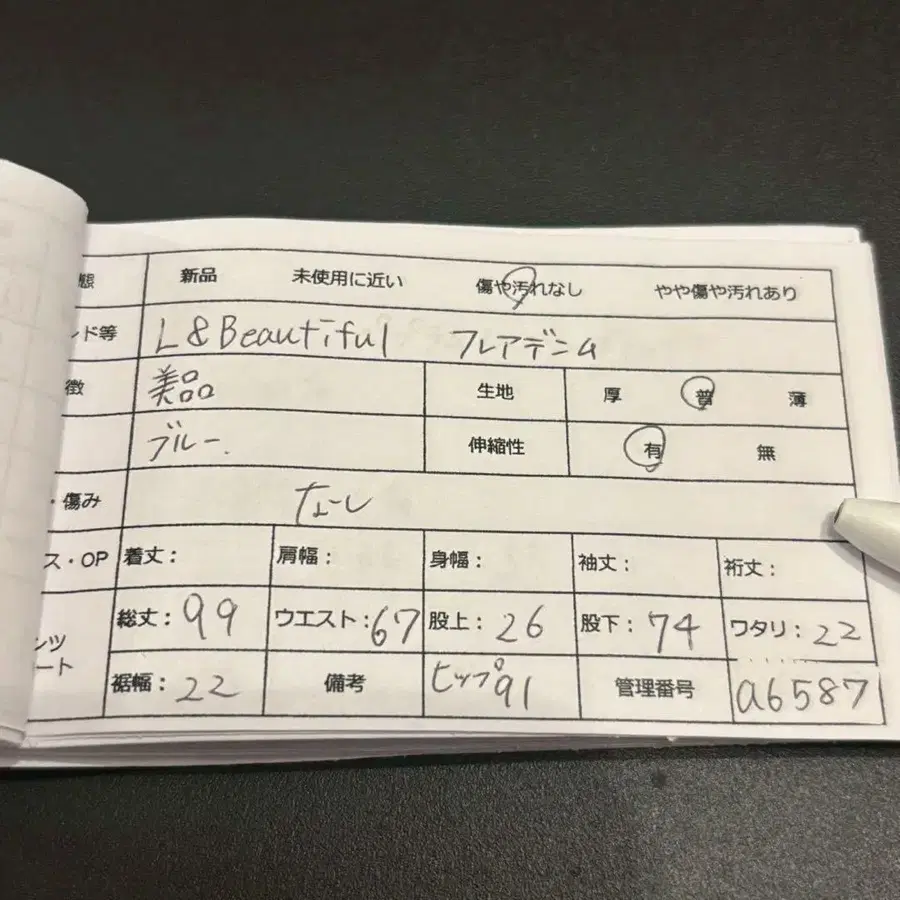 態 新品 未使用に近い 傷や汚れなし やや傷や汚れあり
ンド等 L&Beautiful フレアデニム
徴 美品 生地 厚 普 薄
ブルー. 伸縮性 有 無
・傷み なし
ス・OP 着丈: 肩幅: 身幅: 袖丈: 裄丈:
ンツ 総丈:99 ウエスト:67 股上:26 股下:74 ワタリ:22
ート 裾幅:22 備考 ヒップ91 管理番号 a6587